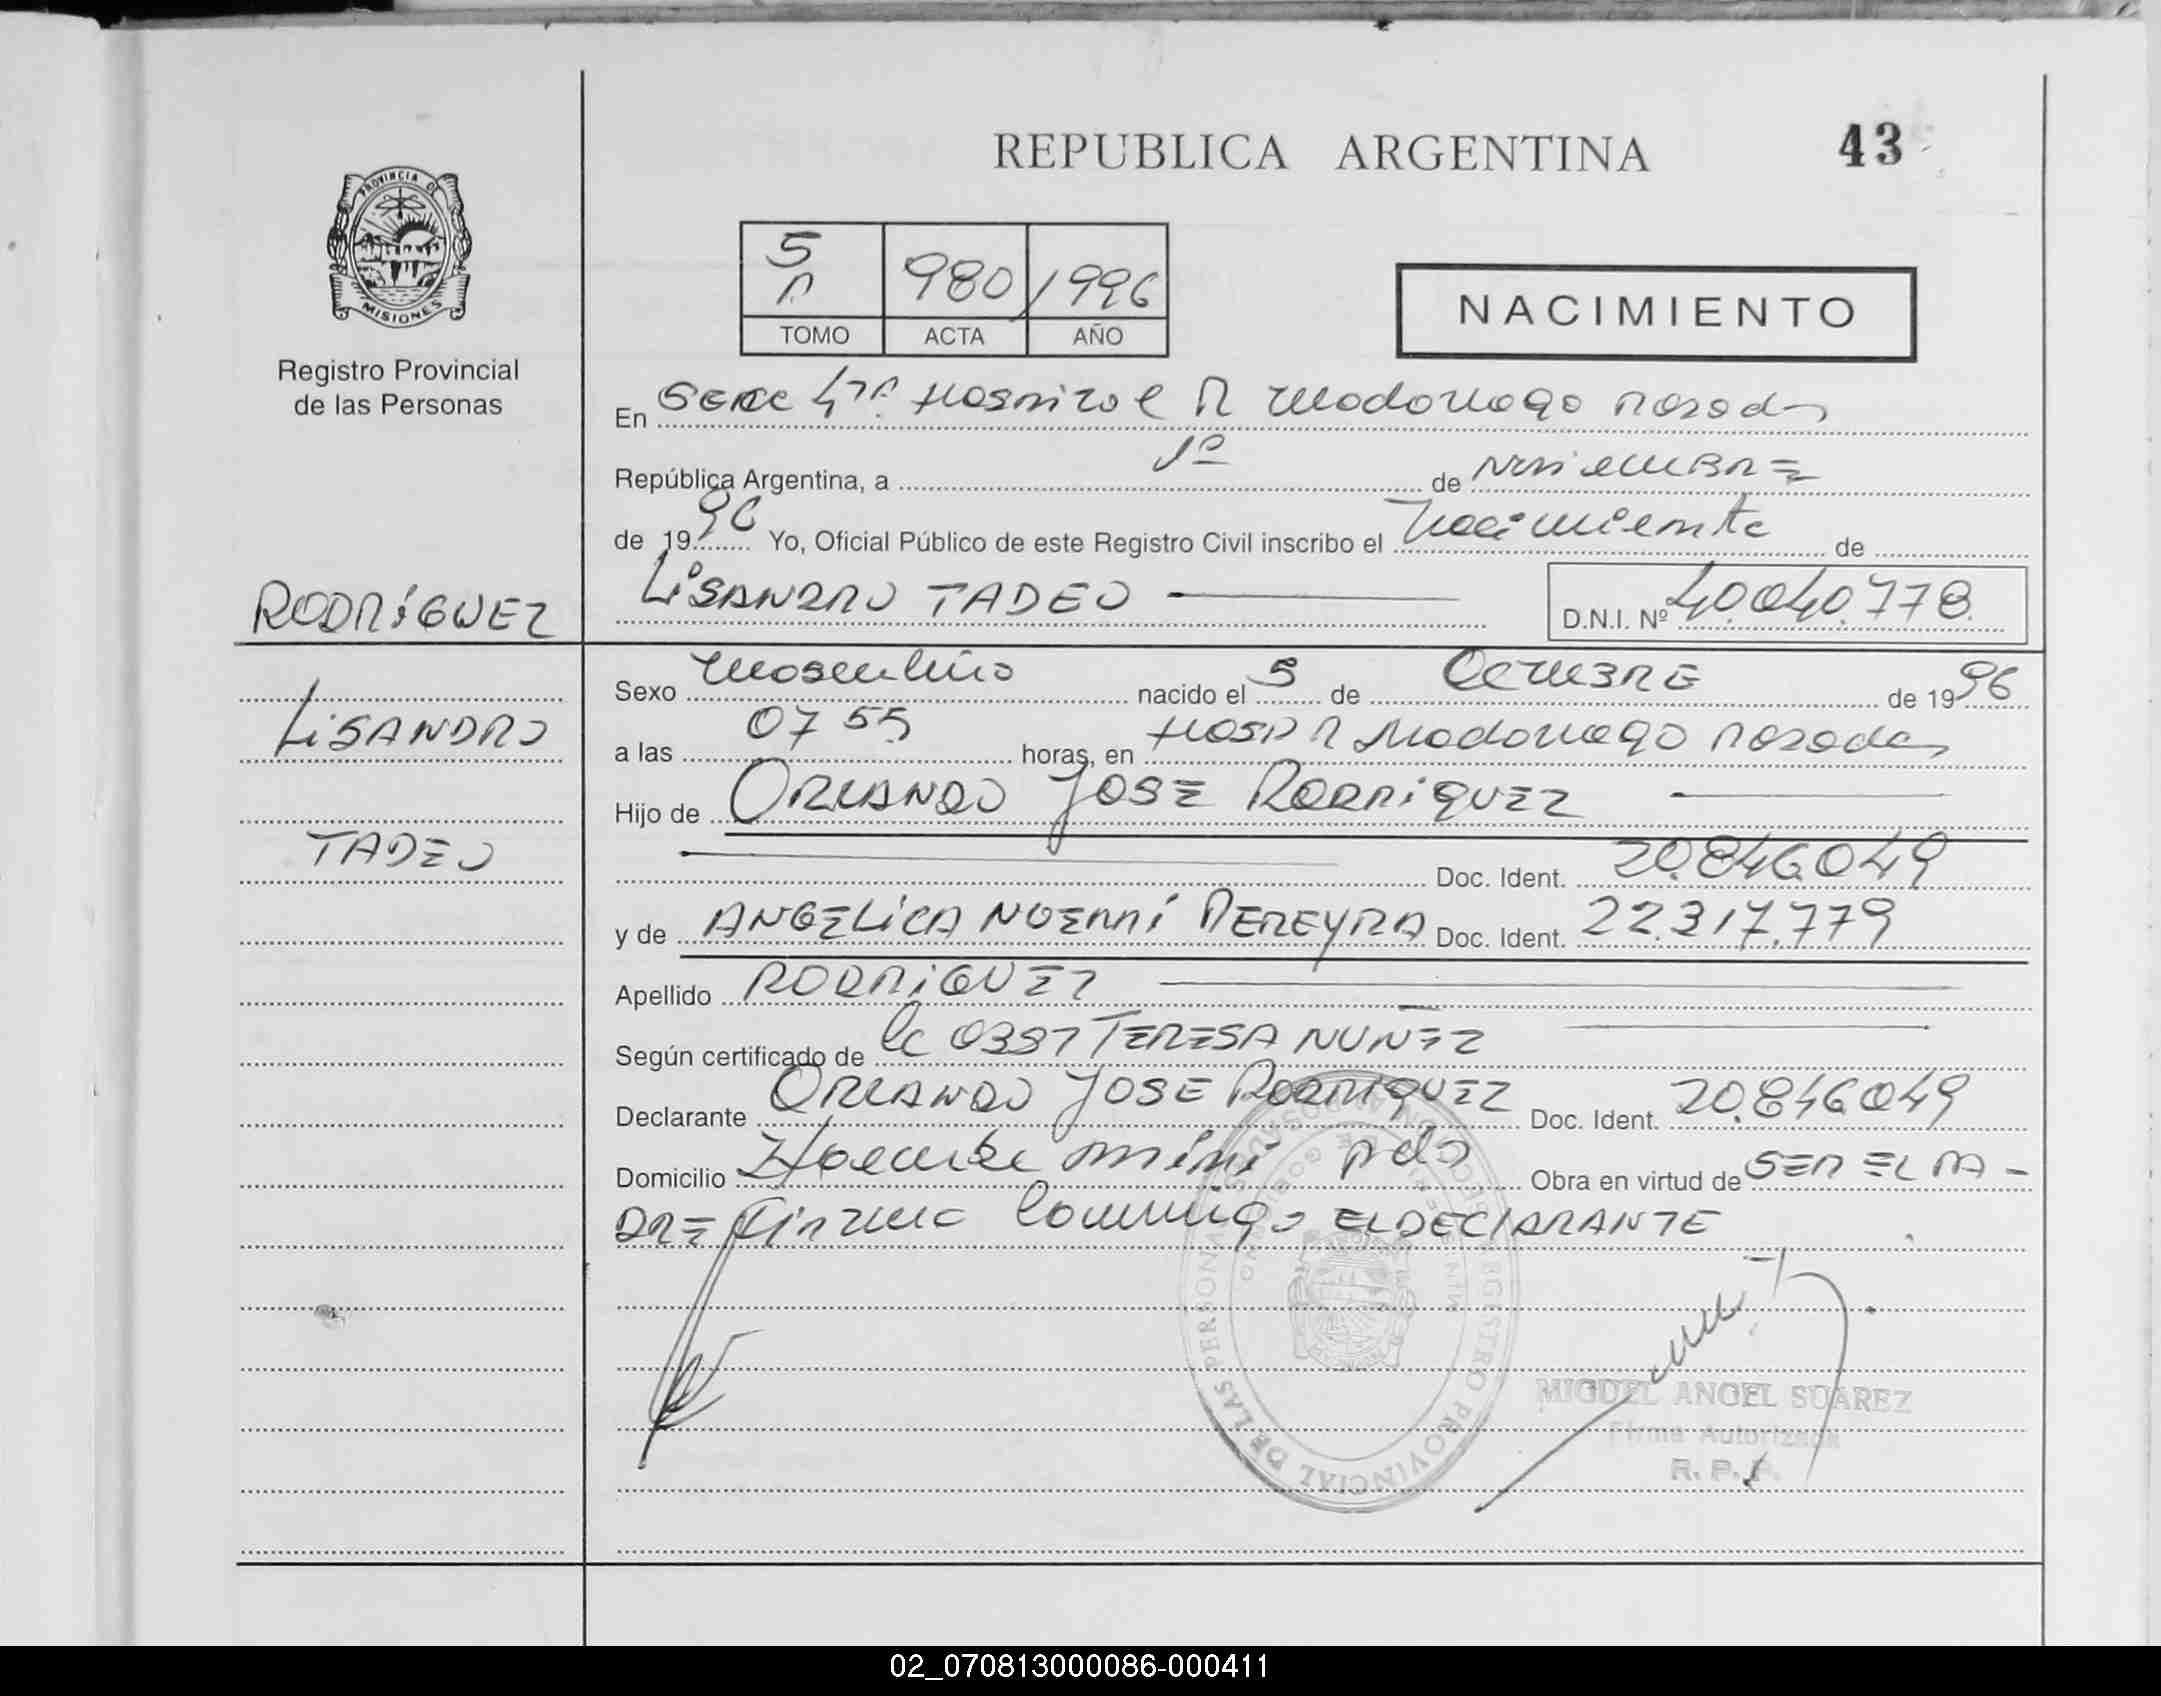 REPUBLICA ARGENTINA
43
PROVINCIA DE
MISIONES
Registro Provincial
de las Personas
5 980 1996
TOMO ACTA AÑO
NACIMIENTO
En Hospital R Madariaga Posadas
República Argentina, a 1º de Noviembre
de 1996 Yo, Oficial Público de este Registro Civil inscribo el Nacimiento de
LISANDRO TADEO
D.N.I. Nº 40.040.778
RODRÍGUEZ
LISANDRO
TADEO
Sexo Masculino nacido el 5 de OCTUBRE de 1996
a las 07 55 horas, en Hosp R Madariaga Posadas
Hijo de ORLANDO JOSE RODRIGUEZ
Doc. Ident. 20.846.049
y de ANGELICA NOEMÍ PEREYRA Doc. Ident. 22.317.779
Apellido RODRIGUEZ
Según certificado de TERESA NUÑEZ
Declarante ORLANDO JOSE RODRIGUEZ Doc. Ident. 20.846.049
Domicilio miní pdas Obra en virtud de SER EL PA-
DRE Firma Conmigo EL DECLARANTE
REGISTRO PROVINCIAL DE LAS PERSONAS
MIGUEL ANGEL SUAREZ
Firma Autorizada
R. P. P.
02_070813000086-000411